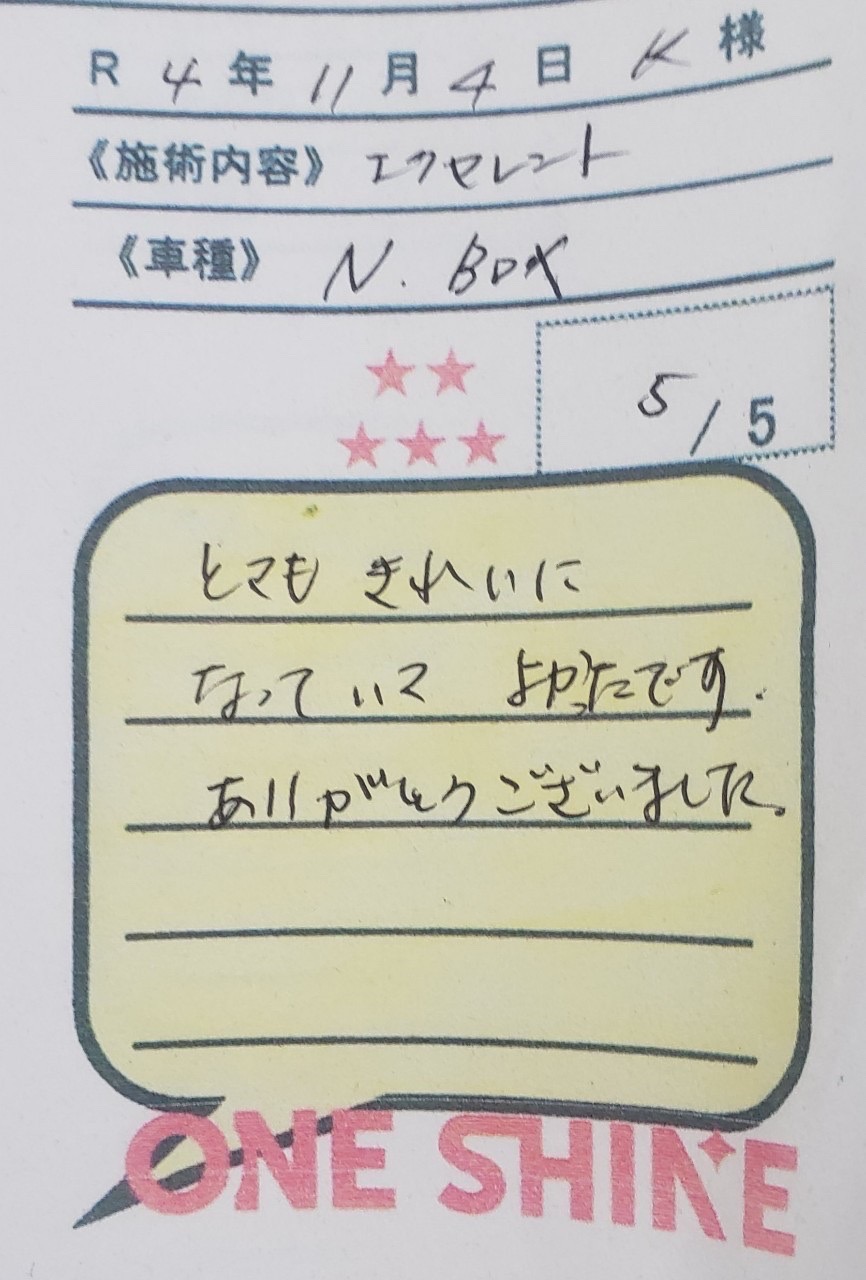 R 4年 11月 4日 K 様
《施術内容》 エクセレント
《車種》 N. BOX
5/5
とてもきれいに
なっていて よかったです.
ありがとうございました。
ONE SHINE